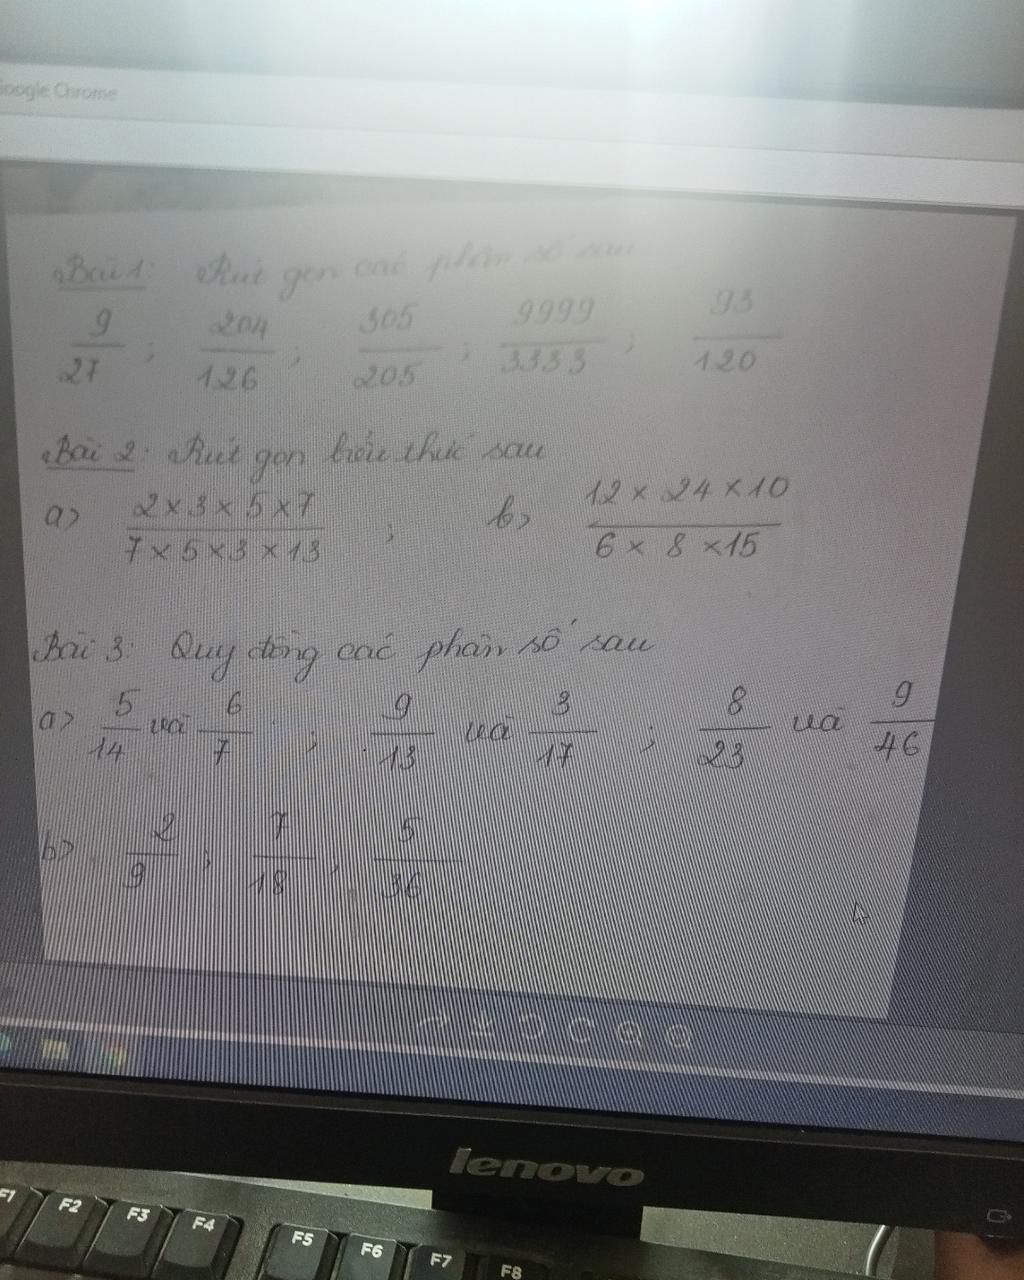 Google Chrome
Bài 1: Rút gọn các phân số sau
9/27 ; 204/126 ; 305/205 ; 9999/3333 ; 93/120
Bài 2: Rút gọn biểu thức sau
a> 2 x 3 x 5 x 7 / 7 x 5 x 3 x 13 ; b> 12 x 24 x 10 / 6 x 8 x 15
Bài 3: Quy đồng các phân số sau
a> 5/14 và 6/7 ; 9/13 và 3/17 ; 8/23 và 9/46
b> 2/9 ; 7/18 ; 5/36
lenovo
F1 F2 F3 F4 F5 F6 F7 F8